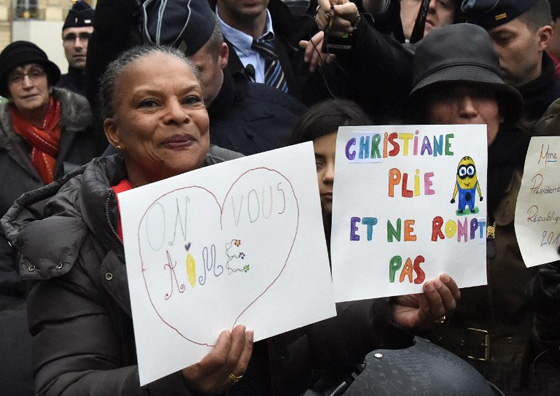 ON VOUS
AIME
CHRISTIANE
PLIE
ET NE ROMPT
PAS
Mme
Présidente
République